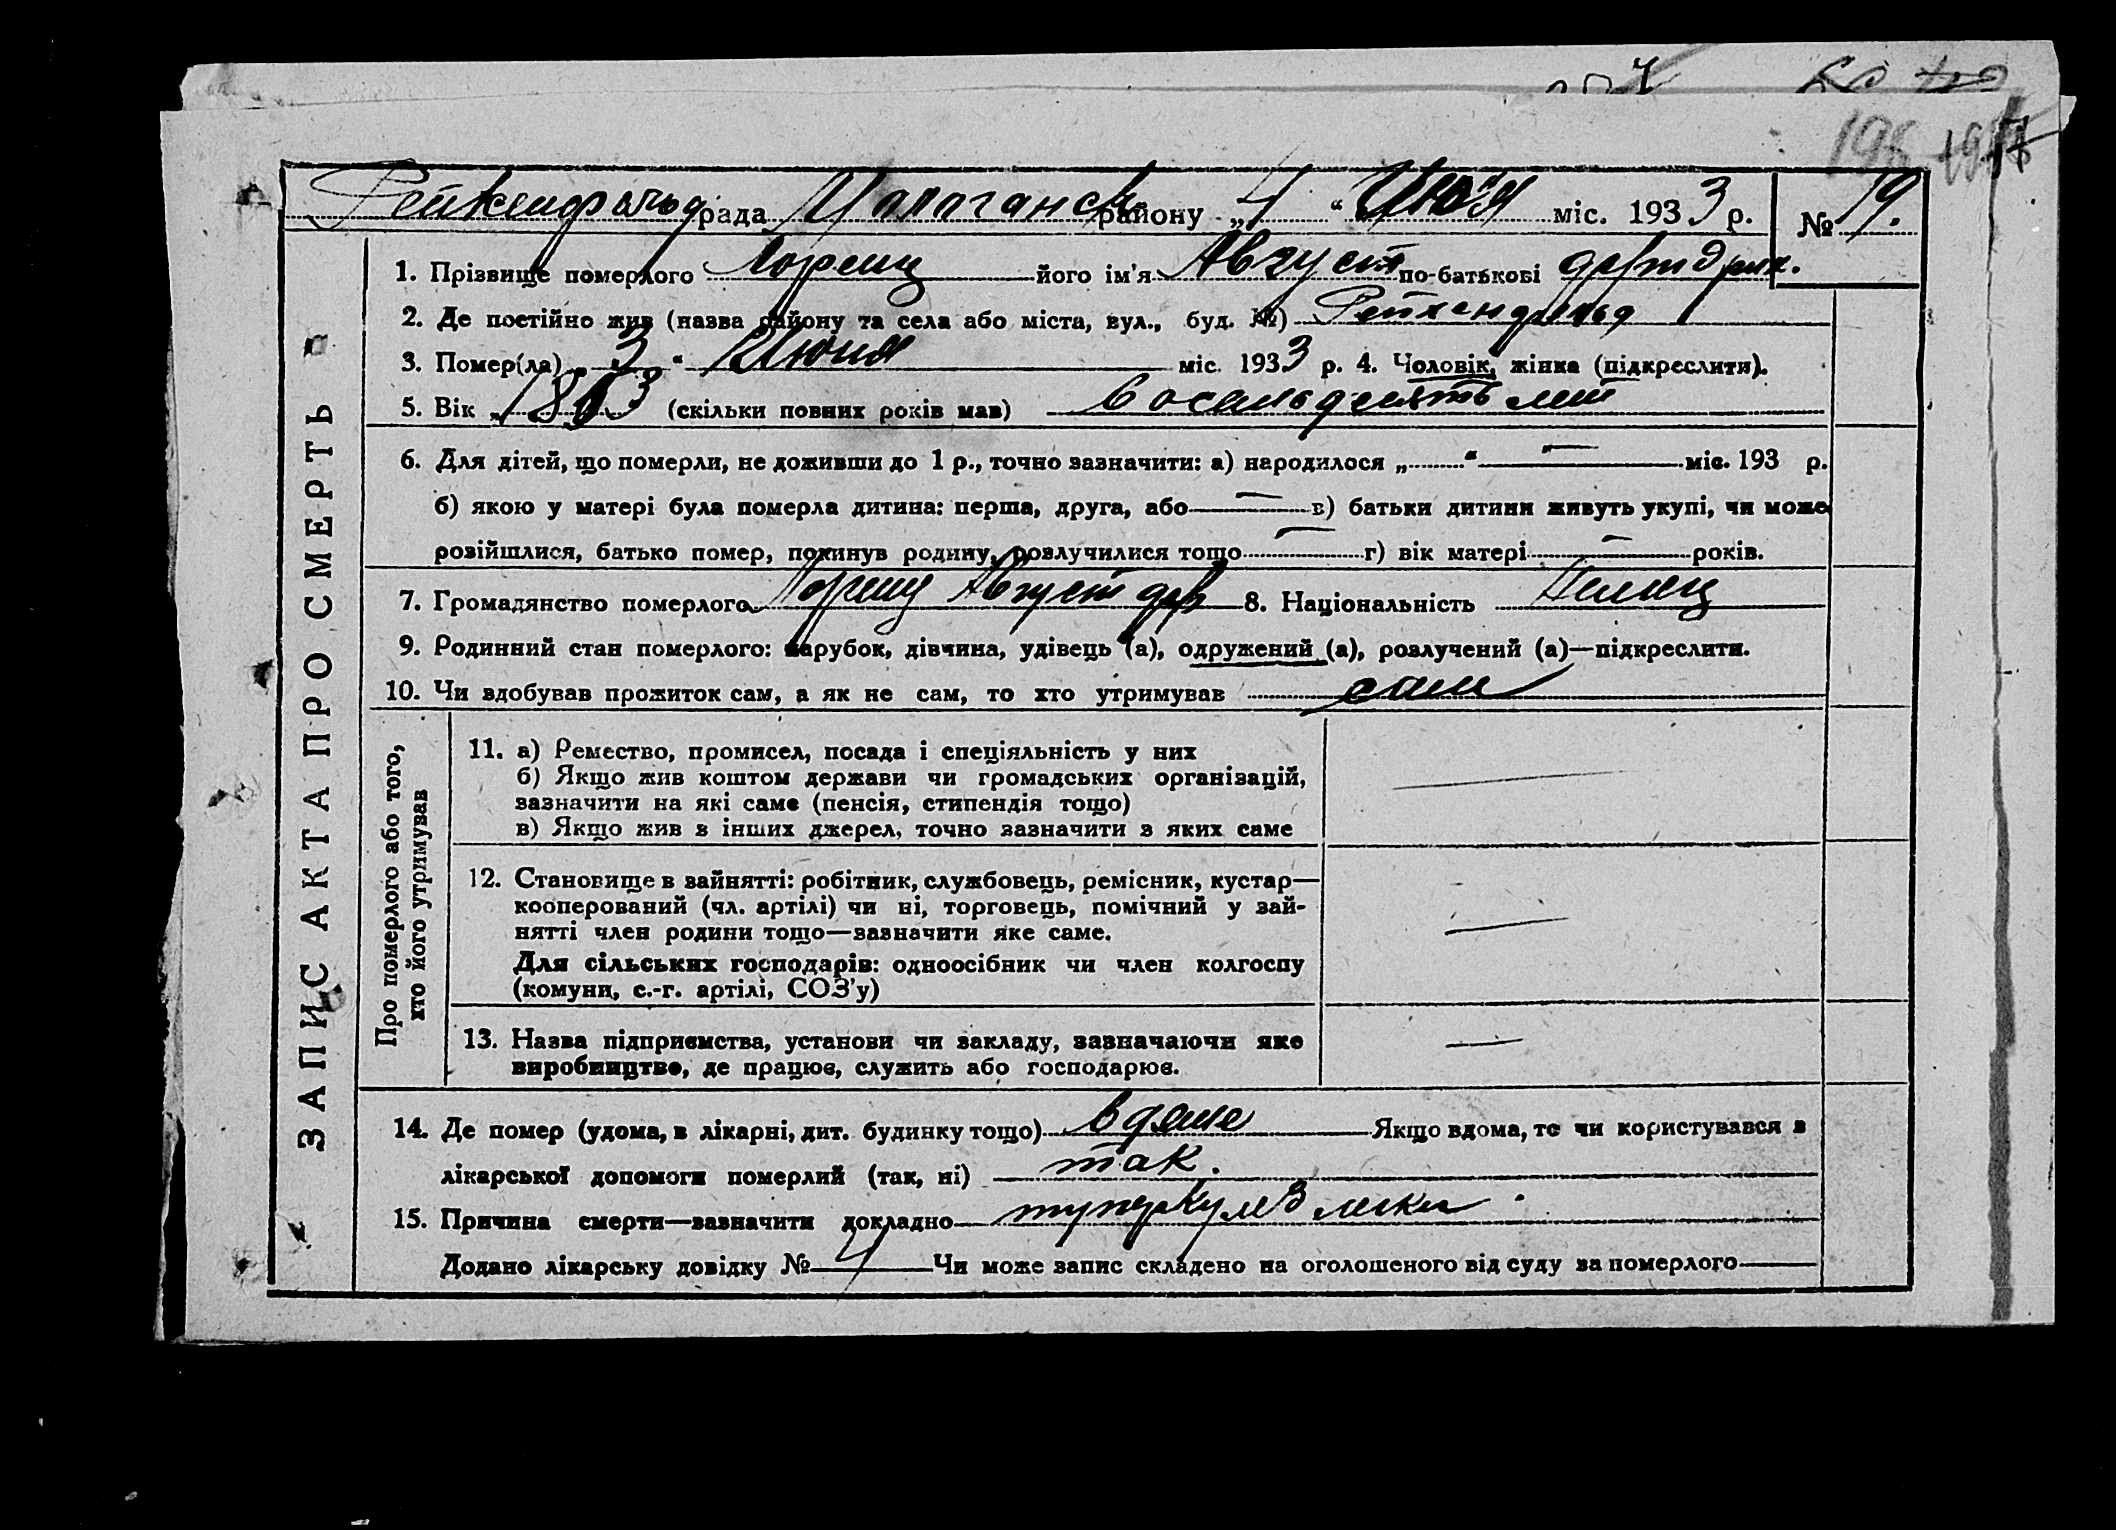 195 197
Рейхенфельд рада Мологанск району „4“ Июня міс. 1933 р. № 19.
1. Прізвище померлого Лоренц його ім'я Август по-батькові фридрих.
2. Де постійно жив (назва району та села або міста, вул., буд. №) Рейхенфельд
3. Помер(ла) „3“ Июня міс. 1933 р. 4. Чоловік, жінка (підкреслити).
5. Вік „1853 (скільки повних років мав) восемьдесять лет
6. Для дітей, що померли, не доживши до 1 р., точно зазначити: а) народилося „ “ — міс. 193 р.
б) якою у матері була померла дитина: перша, друга, або — в) батьки дитини живуть укупі, чи може
розійшлися, батько помер, покинув родину, розлучилися тощо — г) вік матері — років.
7. Громадянство померлого Лоренц Август фр 8. Національність Немец
9. Родинний стан померлого: парубок, дівчина, удівець (а), одружений (а), розлучений (а)—підкреслити.
10. Чи здобував прожиток сам, а як не сам, то хто утримував сам
ЗАПИС АКТА ПРО СМЕРТЬ
Про померлого або того,
хто його утримував
11. а) Ремество, промисел, посада і спеціяльність у них
б) Якщо жив коштом держави чи громадських організацій,
зазначити на які саме (пенсія, стипендія тощо)
в) Якщо жив з інших джерел, точно зазначити з яких саме —
12. Становище в зайнятті: робітник, службовець, ремісник, кустар—
кооперований (чл. артілі) чи ні, торговець, помічний у зай-
нятті член родини тощо—зазначити яке саме. —
Для сільських господарів: одноосібник чи член колгоспу
(комуни, с.-г. артілі, СОЗ'у)
13. Назва підприємства, установи чи закладу, зазначаючи яке
виробництво, де працює, служить або господарює. —
14. Де помер (удома, в лікарні, дит. будинку тощо) вдоме Якщо вдома, то чи користувався з
лікарської допомоги померлий (так, ні) так.
15. Причина смерти—зазначити докладно туперкулез леки
Додано лікарську довідку № 4 Чи може запис складено на оголошеного від суду за померлого